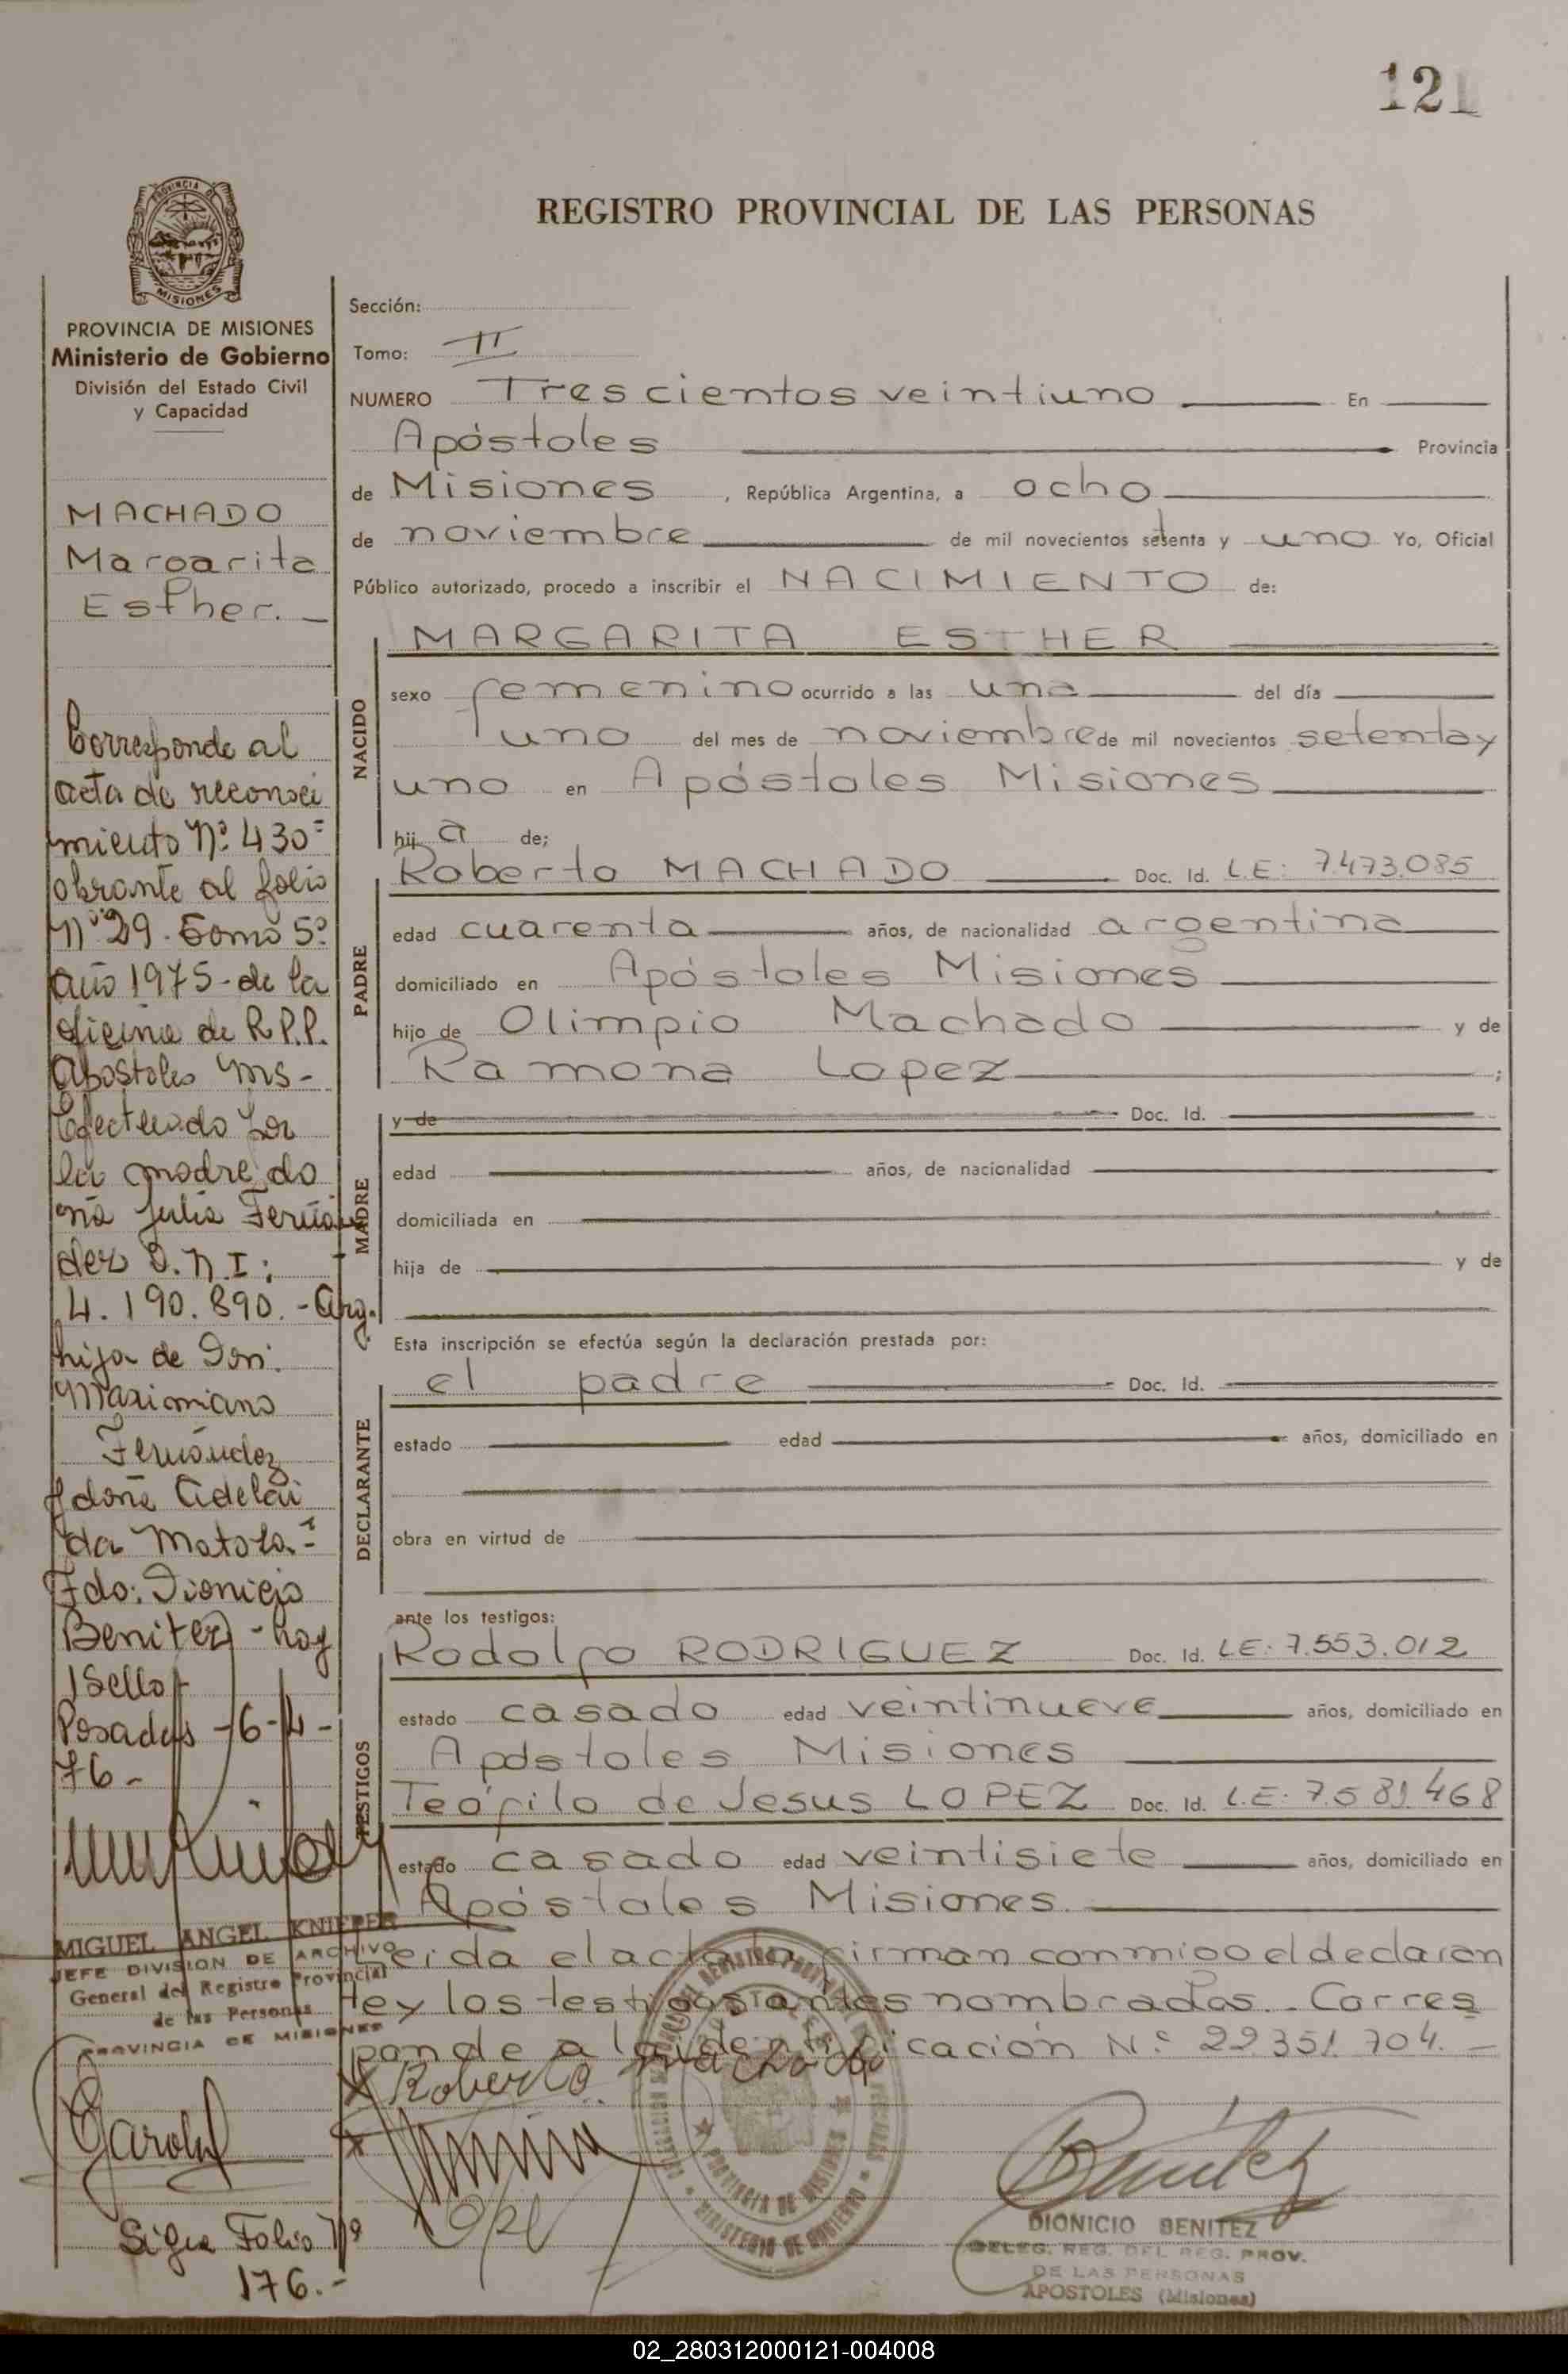 121
REGISTRO PROVINCIAL DE LAS PERSONAS
PROVINCIA DE MISIONES
Ministerio de Gobierno
División del Estado Civil
y Capacidad
MACHADO
Margarita
Esther. —
Corresponde al
acta de reconoci
miento Nº 430=
obrante al folio
Nº 29. Tomo 5º
año 1975 - de la
oficina de R.P.P.
Apostoles Mns -
Efectuado por
la madre do
ña Julia Fernán
dez D.N.I:
4.190.890. - Arg.
hija de Don:
Maximiano
Fernández
y doña Adelai
da Matola.=
Fdo: Dionicio
Benitez - hay
1 Sello -
Posadas - 6-4-
76 -
MIGUEL ANGEL KNIEPER
JEFE DIVISION DE ARCHIVO
General del Registro Provincial
de las Personas
PROVINCIA DE MISIONES
Sigue Folio Nº
176.-
Sección:
Tomo: II
NUMERO Trescientos veintiuno En
Apóstoles Provincia
de Misiones, República Argentina, a ocho
de noviembre de mil novecientos setenta y uno Yo, Oficial
Público autorizado, procedo a inscribir el NACIMIENTO de:
NACIDO
MARGARITA ESTHER
sexo femenino ocurrido a las una del día
uno del mes de noviembre de mil novecientos setenta y
uno en Apóstoles Misiones
hij a de;
PADRE
Roberto MACHADO Doc. Id. L.E: 7.473.085
edad cuarenta años, de nacionalidad argentina
domiciliado en Apóstoles Misiones
hijo de Olimpio Machado y de
Ramona Lopez ;
MADRE
y de Doc. Id.
edad años, de nacionalidad
domiciliada en
hija de y de
Esta inscripción se efectúa según la declaración prestada por:
DECLARANTE
el padre Doc. Id.
estado edad años, domiciliado en
obra en virtud de
ante los testigos:
TESTIGOS
Rodolfo RODRIGUEZ Doc. Id. LE: 7.553.012
estado casado edad veintinueve años, domiciliado en
Apóstoles Misiones
Teófilo de Jesus LOPEZ Doc. Id. L.E: 7.581.468
estado casado edad veintisiete años, domiciliado en
Apóstoles Misiones.
Leida el acta la firman conmigo el declaran
te y los testigos antes nombrados. - Corres
ponde a la identificación Nº 22.351.704. —
x Roberto Machado
PROVINCIA DE MISIONES
MINISTERIO DE GOBIERNO
Benitez
DIONICIO BENITEZ
DELEG. REG. DEL REG. PROV.
DE LAS PERSONAS
APOSTOLES (Misiones)
02_280312000121-004008